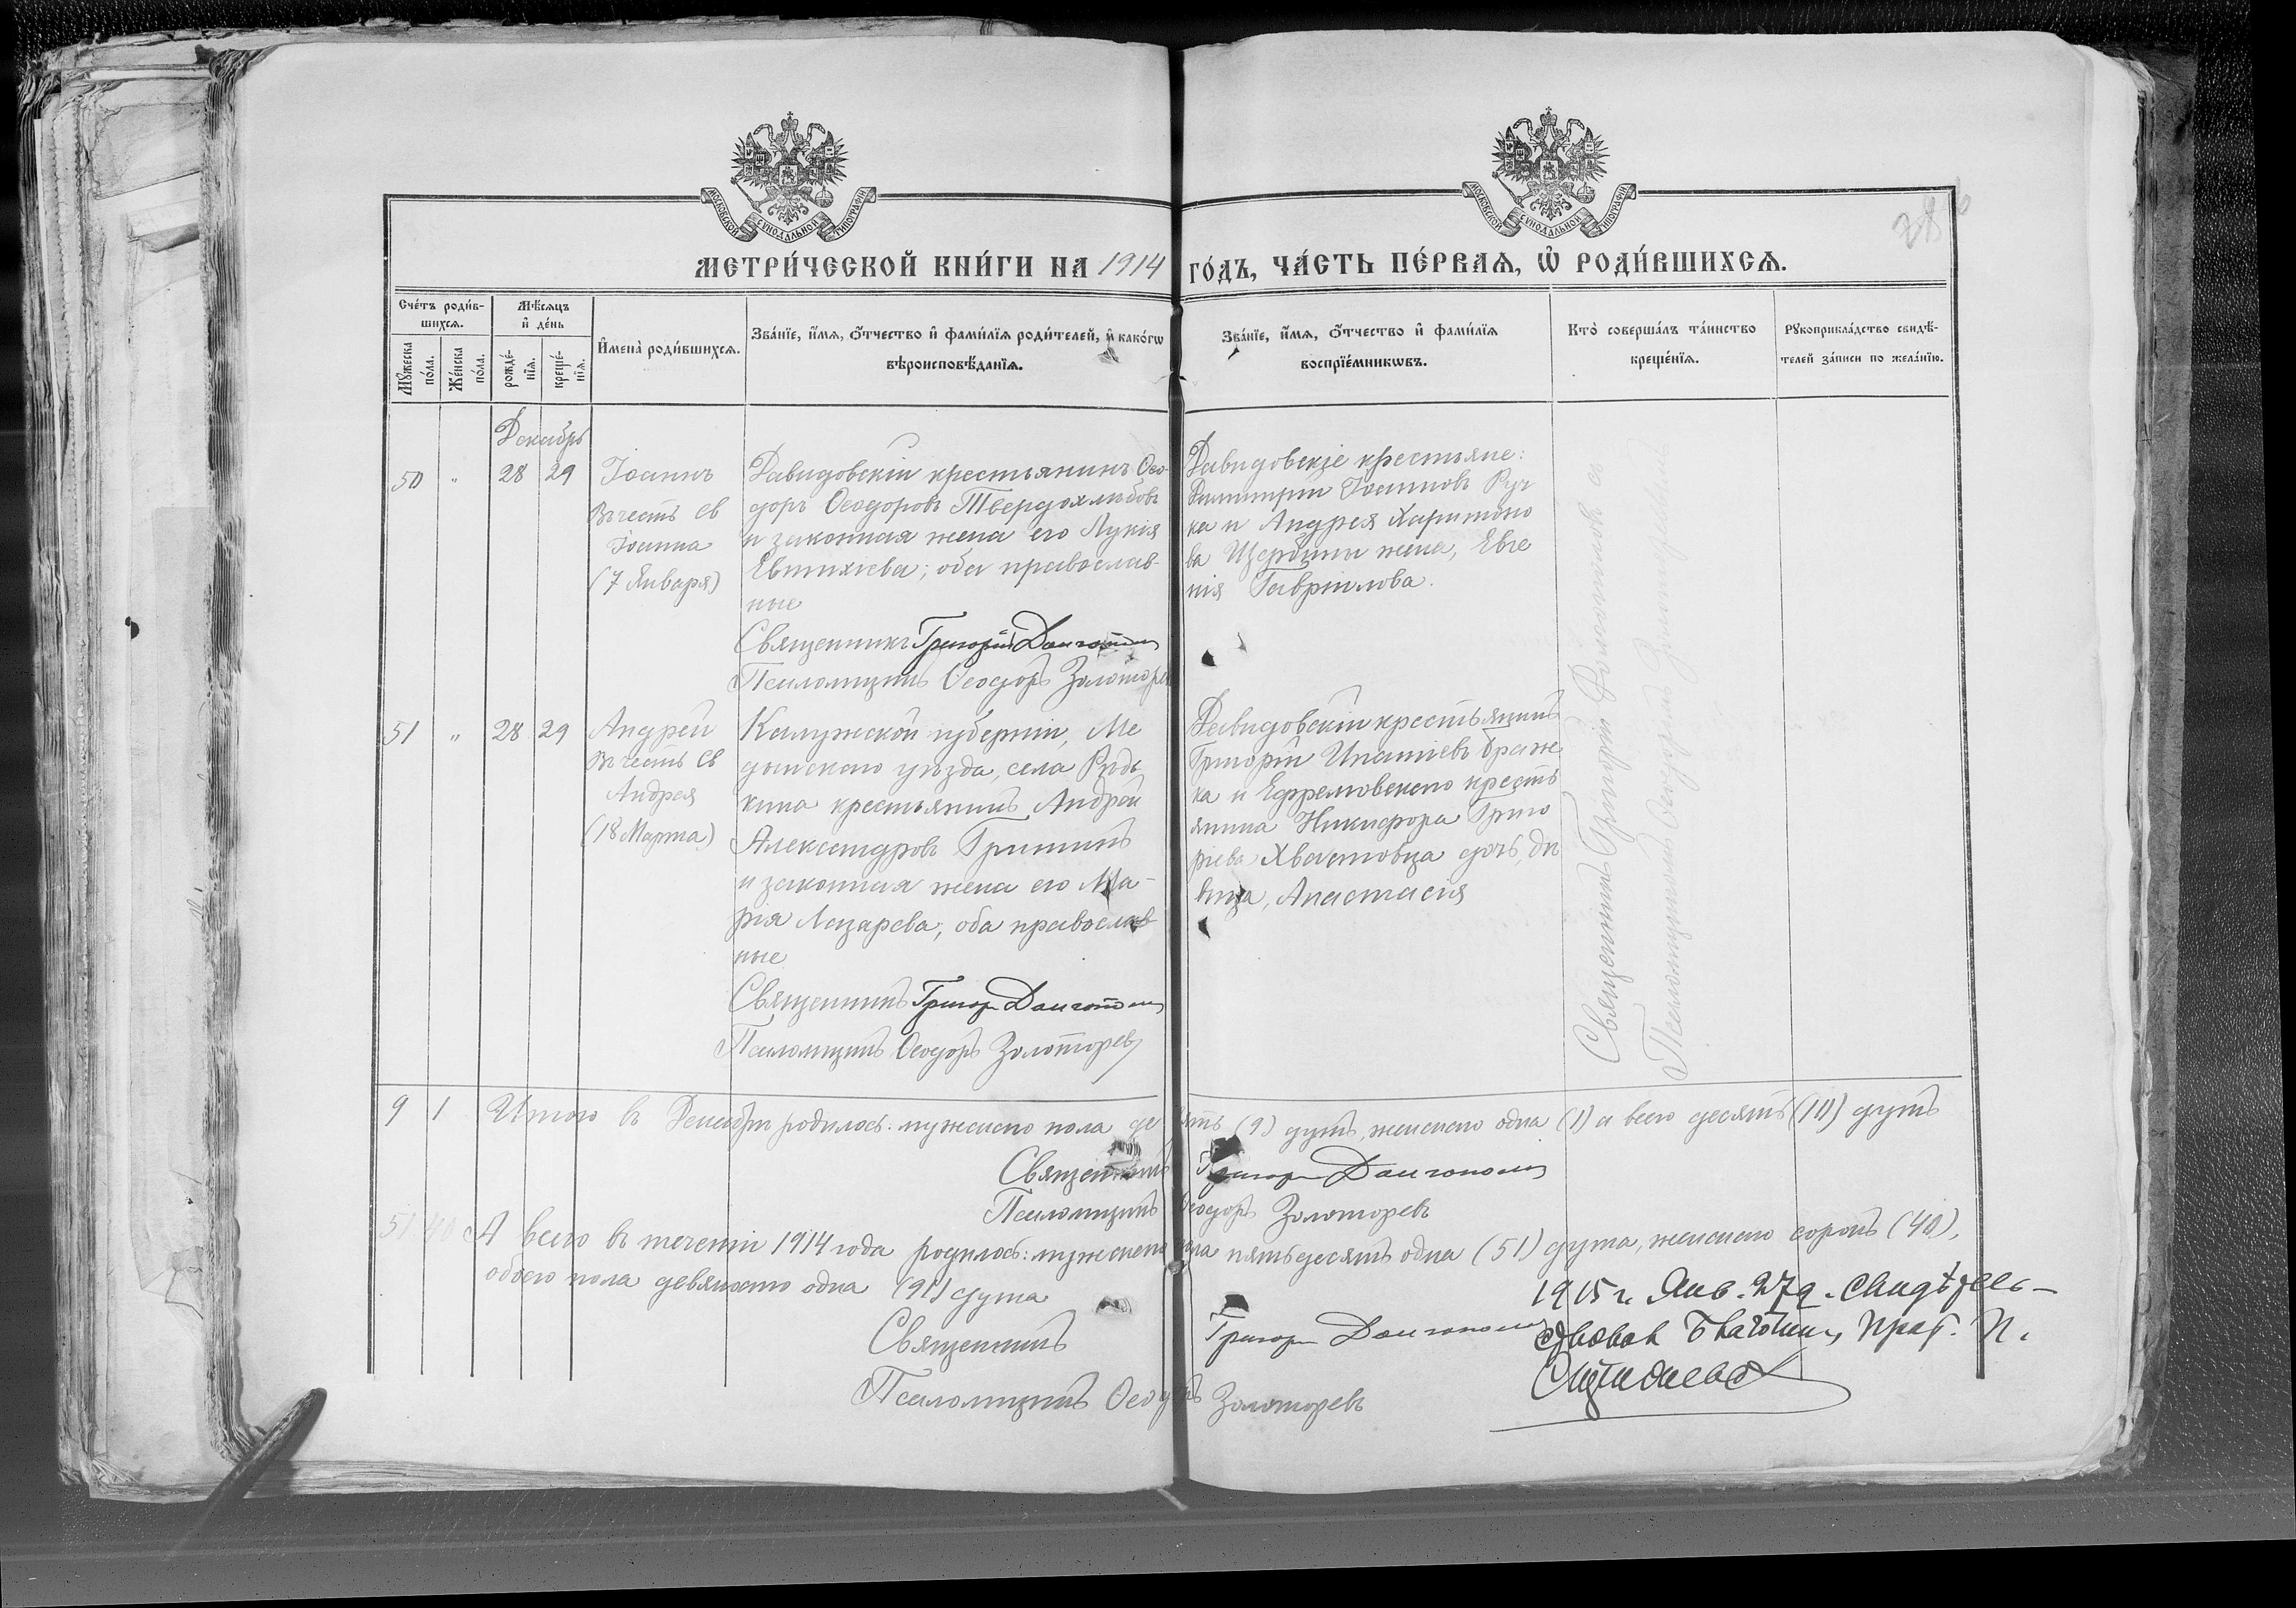 МОСКОВСКОЙ СУНОДАЛЬНОЙ ТИПОГРАФІИ
МОСКОВСКОЙ СУНОДАЛЬНОЙ ТИПОГРАФІИ
МЕТРИ́ЧЕСКОЙ КНИ́ГИ НА 1914 ГО́ДЪ, ЧА́СТЬ ПЕ́РВАЯ, Ѡ҆ РОДИ́ВШИХСЯ.
Сче́тъ роди́в-
шихся.
Мѣ́сяцъ
и҆ де́нь
Мꙋ́жеска
по́ла.
Же́нска
по́ла.
рожде́-
нїя.
креще́-
нїя.
И҆мена̀ роди́вшихся.
Зва́нїе, и҆́мя, ѻ҆́тчество и҆ фами́лїя роди́телей, и҆ како́гѡ
вѣроисповѣ́данїя.
Зва́нїе, и҆́мя, ѻ҆́тчество и҆ фами́лїя
воспрїе́мникѡвъ.
Кто̀ соверша́лъ та́инство
креще́нїя.
Рꙋкоприкла́дство свидѣ́-
телей за́писи по жела́нїю.
Декабрь
50 " 28 29
Іоаннъ
Въ честь св
Іоанна
(7 Января)
Давидовскій крестьянинъ Ѳео-
доръ Ѳеодоровъ Твердохлѣбовъ
и законная жена его Лукія
Евтихіева; оба православ-
ные
Священникъ Григорій
Псаломщикъ Ѳеодоръ Золоторев
Давидовскіе крестьяне:
Димитрій Іоанновъ Руч
ка и Андрея Харитоно
ва Щербины жена, Евге
нія Гавріилова.
51 " 28 29
Андрей
Въ честь Св
Андрея
(18 Марта)
Калужской губерніи, Ме
дынскаго уѣзда, села Рядь
кина крестьянинъ Андрей
Александровъ Гришинъ
и законная жена его Ма-
рія Лазарева; оба православ
ные
Священникъ Григор
Псаломщикъ Ѳеодоръ Золоторев
Давидовскій крестьянинъ
Григорій Игнатіевъ Браже
ка и Ефремовскаго крестья
янина Никифора Григо
ріева Хвастовца дочь, дѣ
вица, Анастасія
Священникъ Григорій
Псаломщикъ Ѳеодоръ
9 1 Итого въ Декабрѣ родилось: мужескаго пола девять (9) душъ, женскаго одна (1) а всего десять (10) душъ
Священникъ Григор
Псаломщикъ Ѳеодоръ Золоторевъ
51 40 А всего въ теченіи 1914 года родилось: мужескаго пола пятьдесятъ одна (51) душа, женскаго сорокъ (40),
обоего пола девяносто одна (91) душа
Священникъ Григор
Псаломщикъ Ѳеодоръ Золоторевъ
1915 г. Янв. 27 д. Свидѣтель-